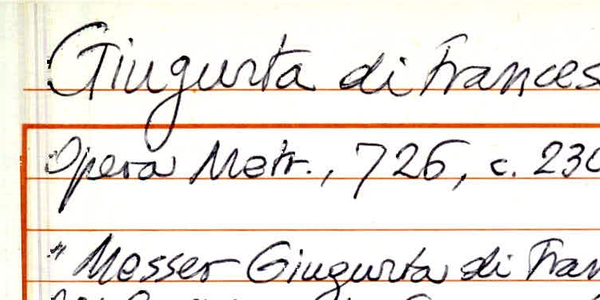 Giugurta di Frances
Opera Metr., 726, c. 230
"Messer Giugurta di Fran